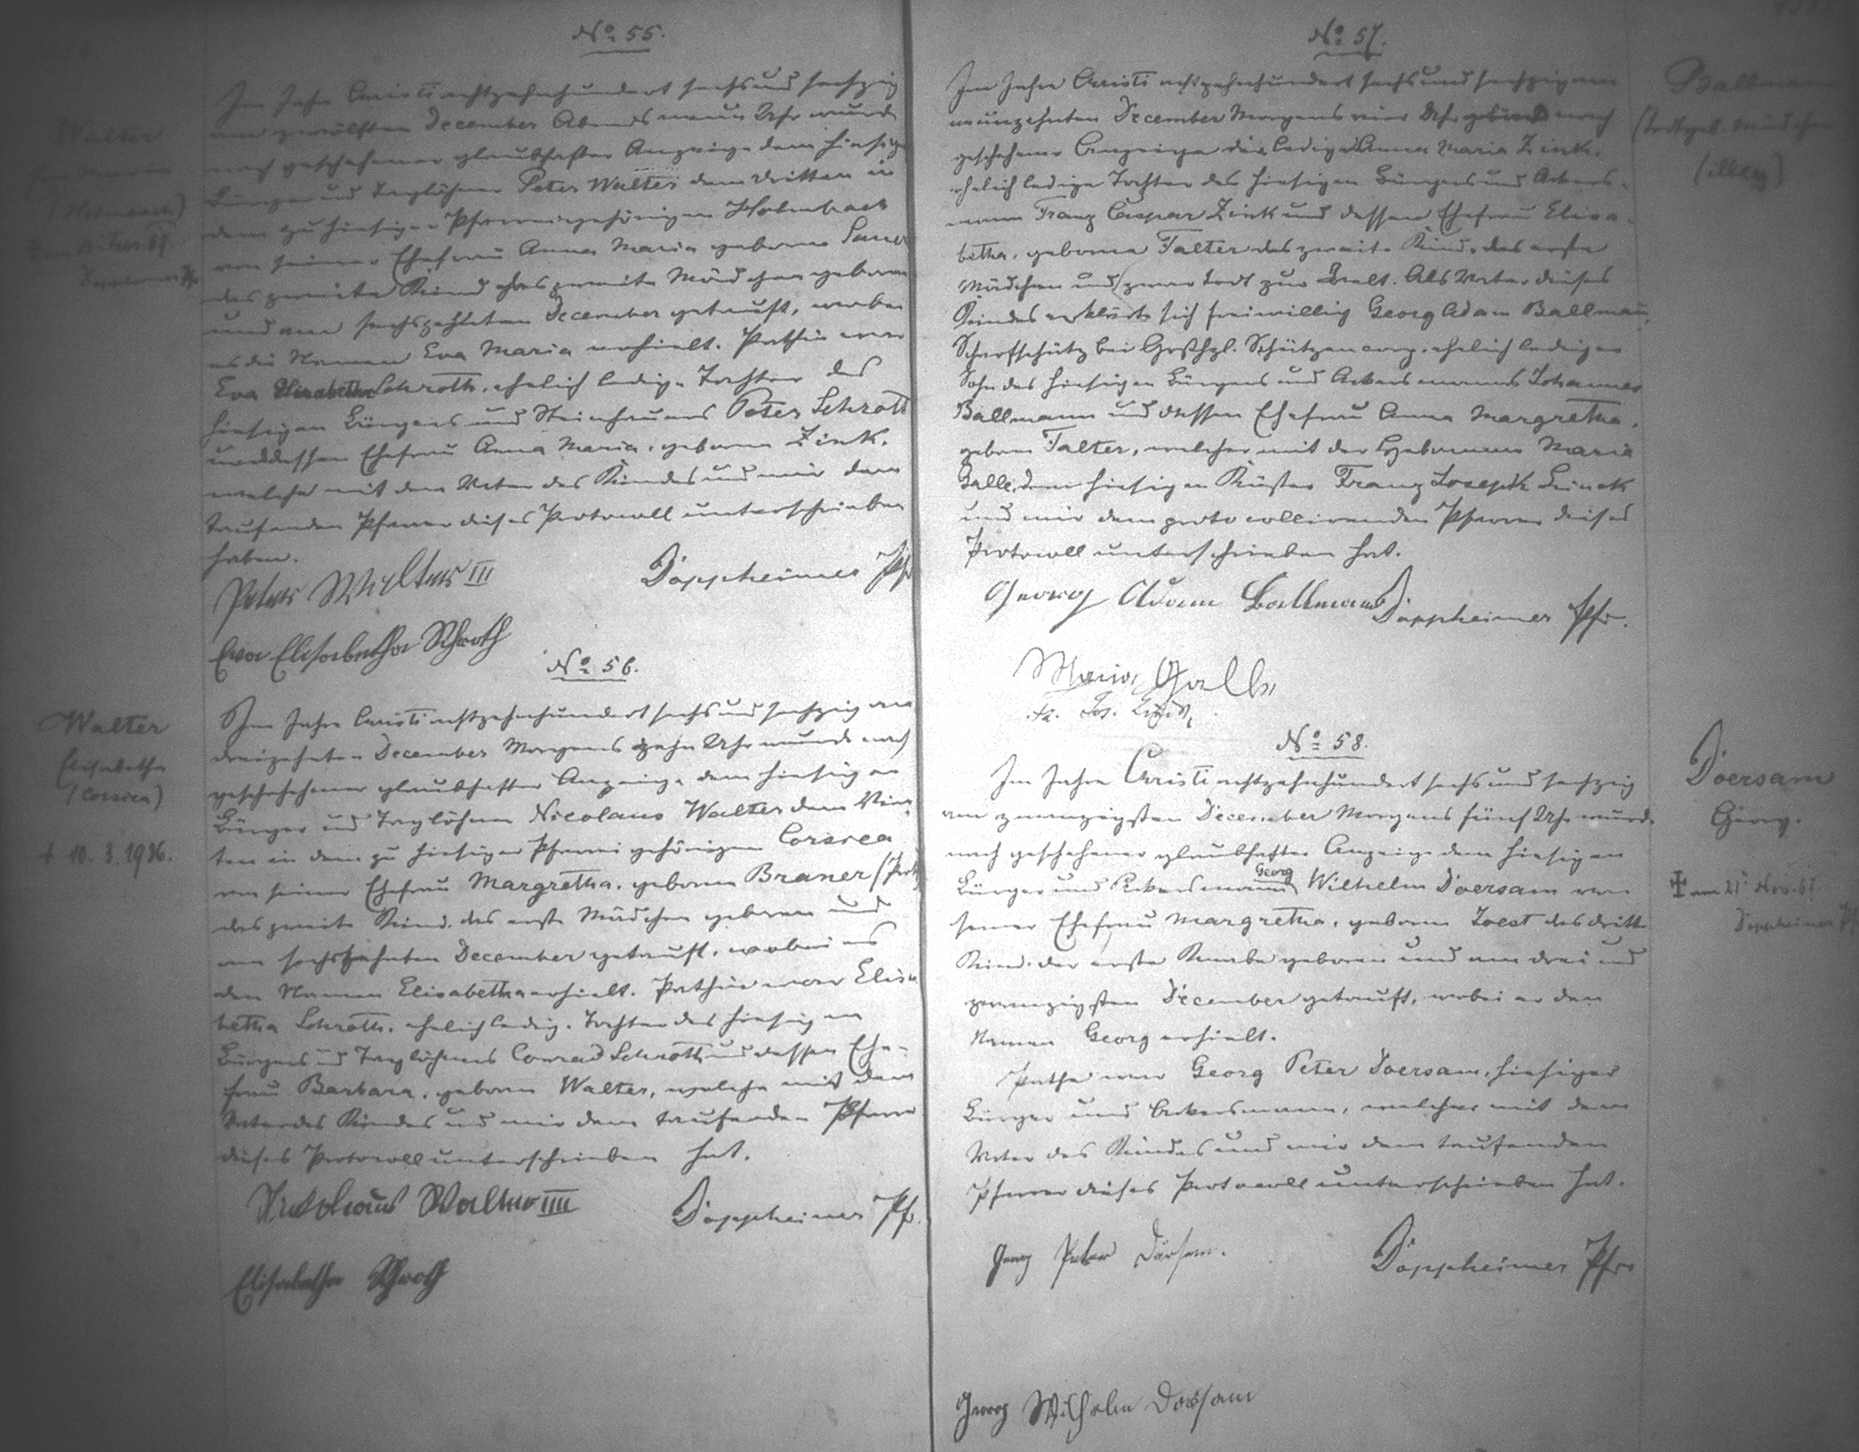 No 55.
Im Jahre Christi achtzehnhundert sechs und sechzig
am zwölften December Abends neun Uhr wurde
nach geschehener glaubhafter Anzeige dem hiesigen
Bürger und Taglöhner Peter Walter dem dritten in
dem zu hiesiger Pfarrei gehörigen Holmbach
von seiner Ehefrau Anna Maria geborne
das zweite Kind das zweite Mädchen geboren
und am sechszehnten December getauft, wobei
es die Namen Eva Maria erhielt. Pathin war
Eva Elisabetha Schroth, ehelich ledige Tochter des
hiesigen Bürgers und Steinhauers Peter Schroth
und dessen Ehefrau Anna Maria, geborne Zink,
welche mit dem Vater des Kindes und mir dem
taufenden Pfarrer dieses Protocoll unterschrieben
haben.
Peter Walter III
Doppheimer Pfr
Eva Elisabetha Schroth
Walter
No 56.
Im Jahre Christi achtzehnhundert sechs und sechzig am
dreizehnten December Morgens zehn Uhr wurde nach
geschehener glaubhafter Anzeige dem hiesigen
Bürger und Taglöhner Nicolaus Walter dem Vier
ten in dem zu hiesiger Pfarrei gehörigen Corsica
von seiner Ehefrau Margretha, geborne Braner
das zweite Kind, das erste Mädchen geboren und
am sechszehnten December getauft, wobei es
den Namen Elisabetha erhielt. Pathin war Elisa
betha Schroth, ehelich ledige Tochter des hiesigen
Bürgers und Taglöhners Conrad Schroth und dessen Ehe-
frau Barbara, geborne Walter, welche mit dem
Vater des Kindes und mir dem taufenden Pfarrer
dieses Protocoll unterschrieben hat.
Nikolaus Walter IIII
Doppheimer Pfr.
Elisabetha Schroth
Walter
Elisabetha
(Corsica)
† 10. 3. 1936.
No 57.
Im Jahre Christi achtzehnhundert sechs und sechzig am
neunzehnten December Morgens vier Uhr gebar nach
geschehener Anzeige die ledige Anna Maria Zink,
ehelich ledige Tochter des hiesigen Bürgers und Ackers-
mann Franz Caspar Zink und dessen Ehefrau Elisa-
betha, geborne Falter das zweite Kind, das erste
Mädchen und zwar todt zur Welt. Als Vater dieses
Kindes erklärte sich freiwillig Georg Adam Ballmann,
Scharfschütz bei Großhzgl. Schützencorps, ehelich lediger
Sohn des hiesigen Bürgers und Ackersmanns Johannes
Ballmann und dessen Ehefrau Anna Margretha,
geborne Falter, welcher mit der Hebamme Maria
Galle, dem hiesigen Küster Franz Joseph
und mir dem protocollirenden Pfarrer dieses
Protocoll unterschrieben hat.
Georg Adam Ballmann
Doppheimer Pfr.
Maria Galle
Fr. Jos.
Ballmann
(todtgeb. Mädchen
(illeg)
No 58.
Im Jahre Christi achtzehnhundert sechs und sechzig
am zwanzigsten December Morgens fünf Uhr wurde
nach geschehener glaubhafter Anzeige dem hiesigen
Bürger und Ackersmann Georg Wilhelm Doersam von
seiner Ehefrau Margretha, geborne Joest das dritte
Kind, der erste Knabe geboren und am drei und
zwanzigsten December getauft, wobei er den
Namen Georg erhielt.
Pathe war Georg Peter Doersam, hiesiger
Bürger und Ackersmann, welcher mit dem
Vater des Kindes und mir dem taufenden
Pfarrer dieses Protocoll unterschrieben hat.
Georg Peter Dörsam.
Doppheimer Pfr
Georg Wilhelm Dörsam
Doersam
Georg.
am 21 Nov. 67
Doppheimer Pfr